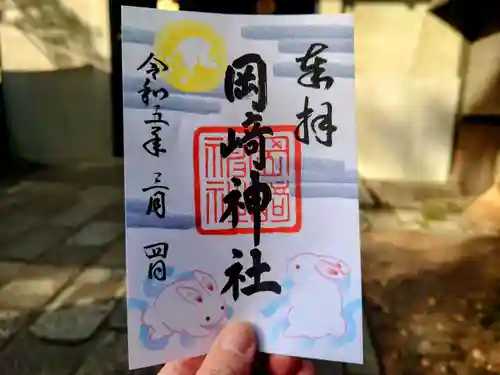 奉拝
岡崎神社
令和五年三月四日